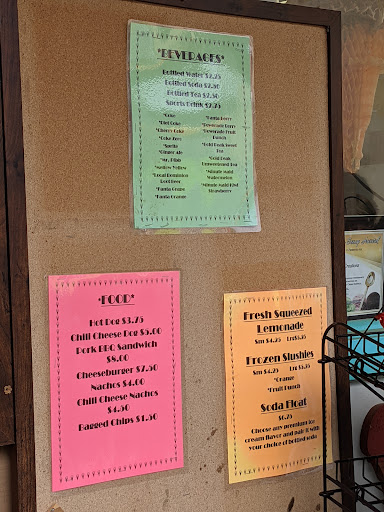 *BEVERAGES*
Bottled Water $2.25
Bottled Soda $2.50
Bottled Tea $2.50
Sports Drink $2.75
*Coke
*Diet Coke
*Cherry Coke
*Coke Zero
*Sprite
*Ginger Ale
*Mr. Pibb
*Mellow Yellow
*Local Dominion
Root Beer
*Fanta Grape
*Fanta Orange
*Fanta Berry
*Powerade Berry
*Powerade Fruit
Punch
*Gold Peak Sweet
Tea
*Gold Peak
Unsweetened Tea
*Minute Maid
Watermelon
*Minute Maid Kiwi
Strawberry
*FOOD*
Hot Dog $3.75
Chili Cheese Dog $5.00
Pork BBQ Sandwich
$8.00
Cheeseburger $7.50
Nachos $4.00
Chili Cheese Nachos
$4.50
Bagged Chips $1.50
Fresh Squeezed
Lemonade
Sm $4.25 Lrg $5.25
Frozen Slushies
Sm $4.25 Lrg $5.25
*Orange
*Fruit Punch
Soda Float
$6.75
Choose any premium ice
cream flavor and pair it with
your choice of bottled soda